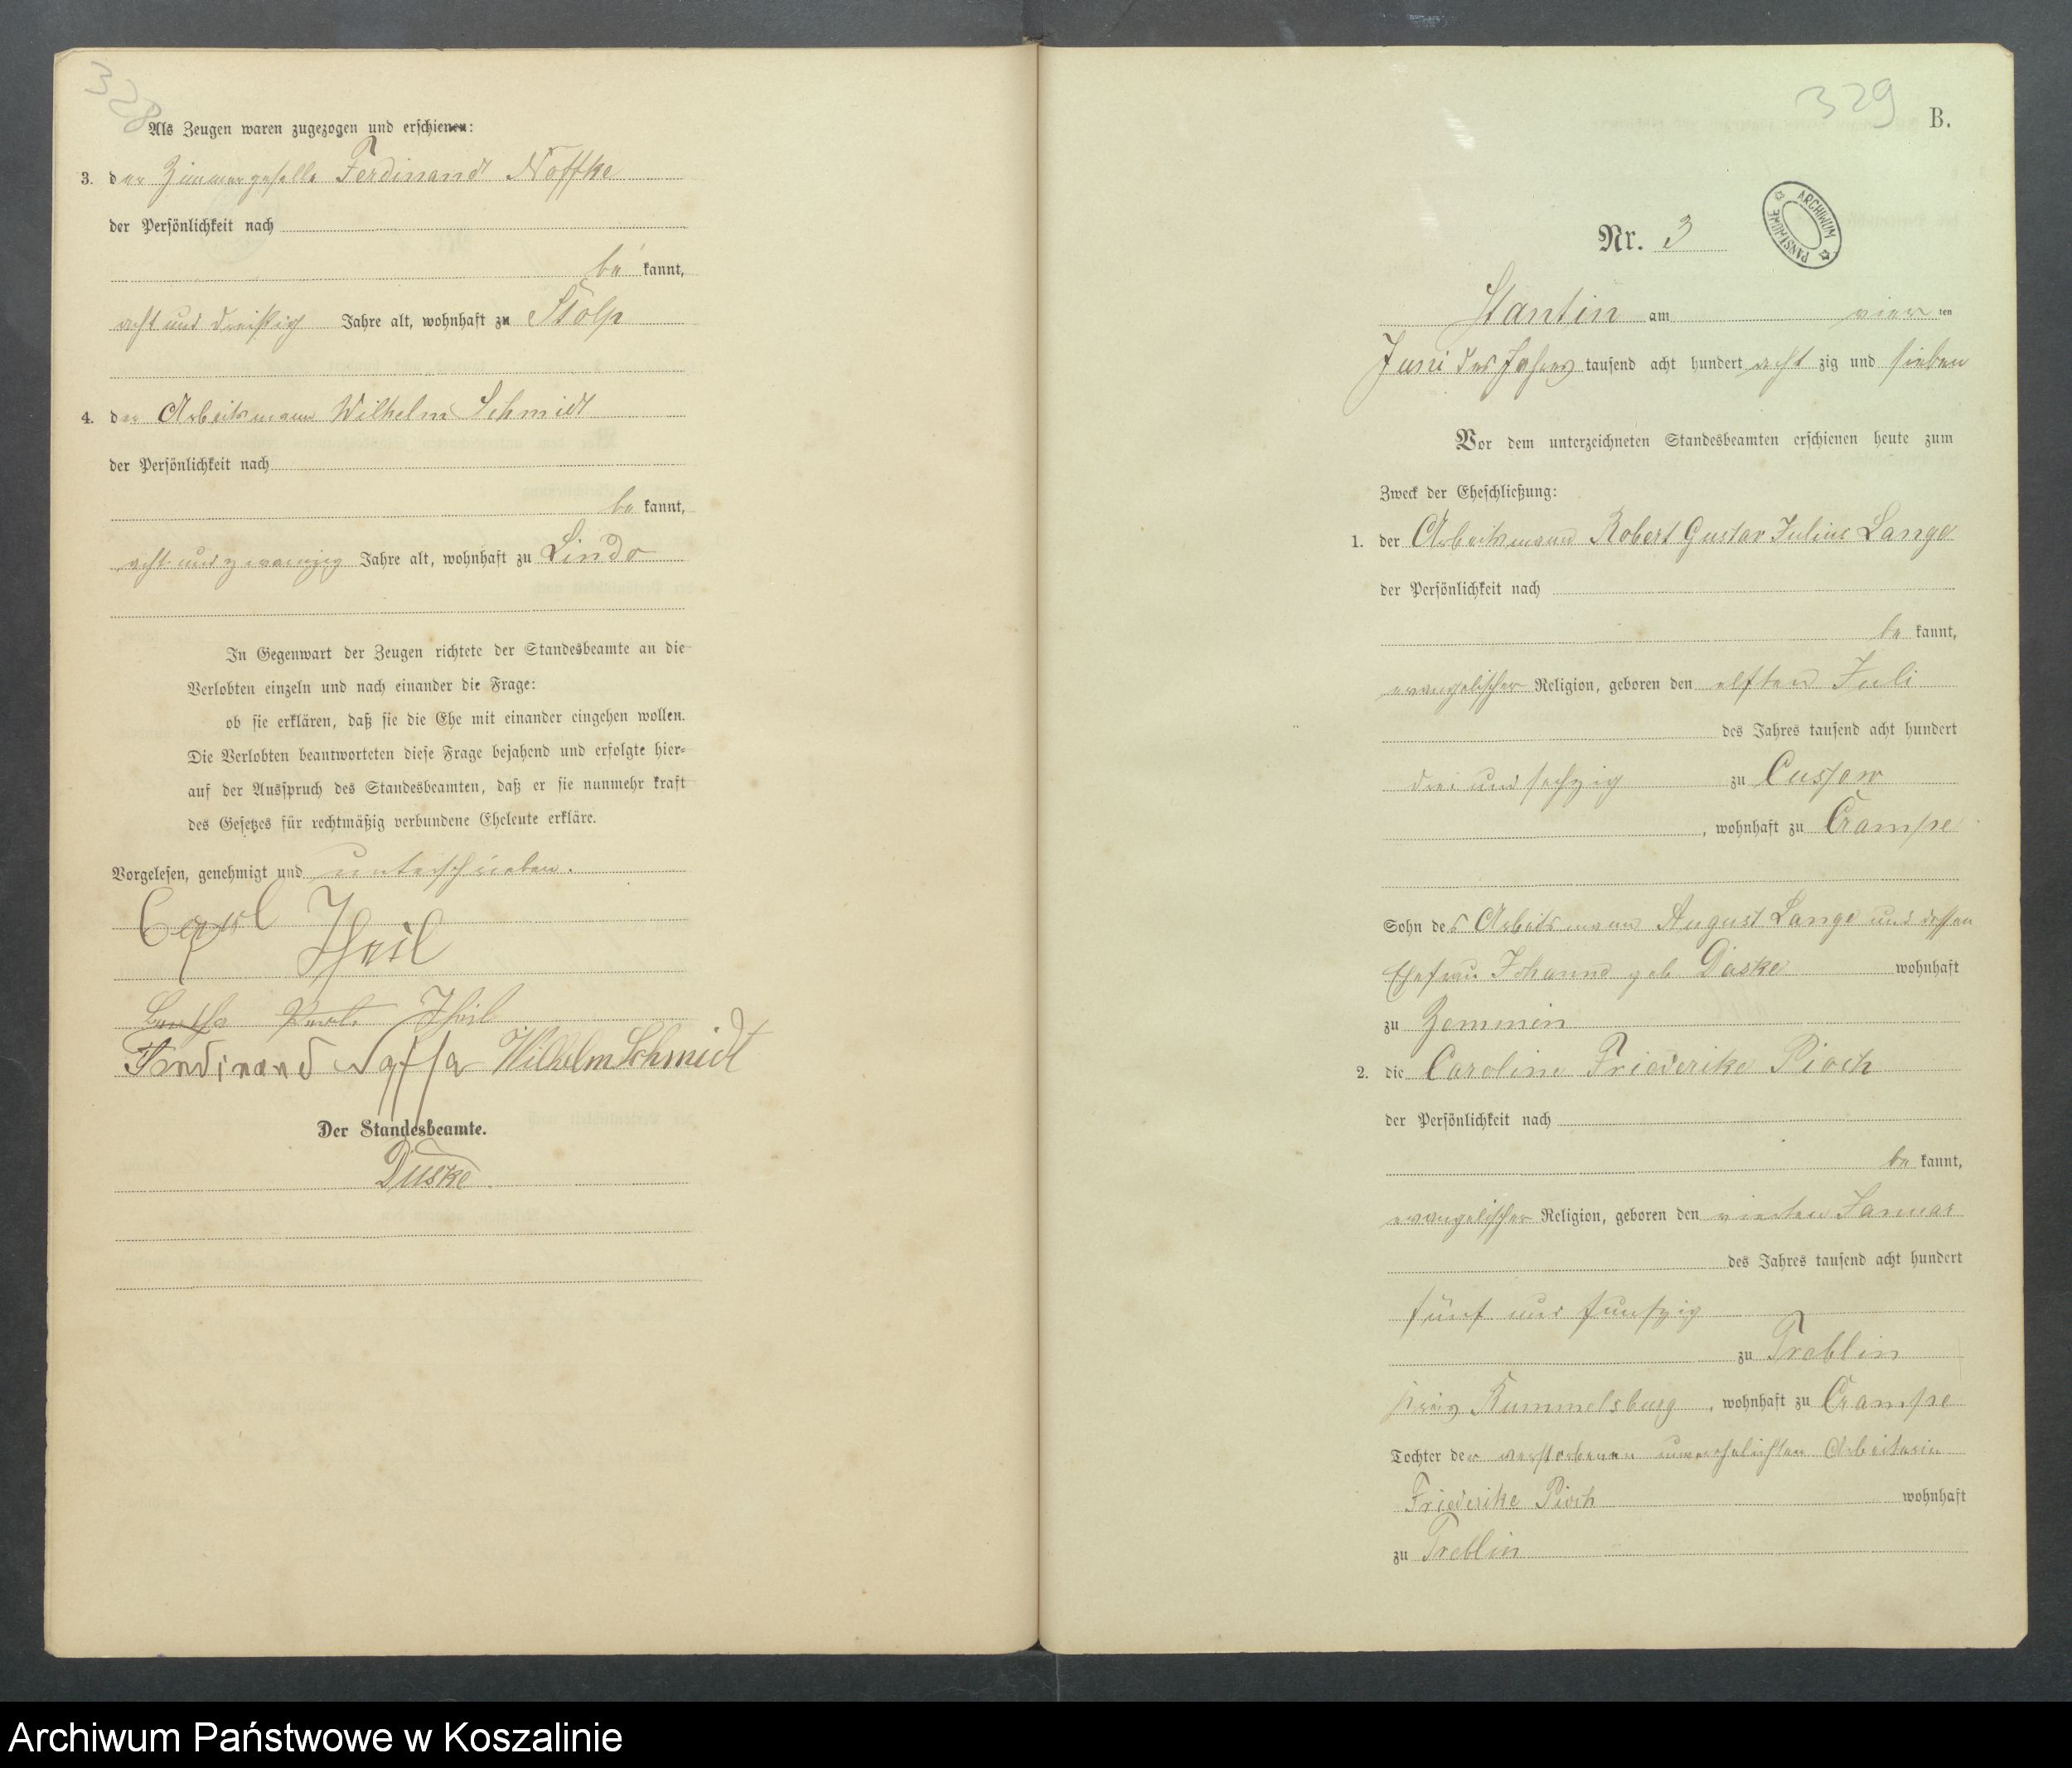 328
Als Zeugen waren zugezogen und erschienen:
3. der Zimmergeselle Ferdinand Noffke
der Persönlichkeit nach
be kannt,
acht und dreißig Jahre alt, wohnhaft zu Stolp
4. der Arbeitsmann Wilhelm Schmidt
der Persönlichkeit nach
be kannt,
acht und zwanzig Jahre alt, wohnhaft zu Lindo
In Gegenwart der Zeugen richtete der Standesbeamte an die
Verlobten einzeln und nach einander die Frage:
ob sie erklären, daß sie die Ehe mit einander eingehen wollen.
Die Verlobten beantworteten diese Frage bejahend und erfolgte hier-
auf der Ausspruch des Standesbeamten, daß er sie nunmehr kraft
des Gesetzes für rechtmäßig verbundene Eheleute erkläre.
Vorgelesen, genehmigt und unterschrieben.
Carl Theil
Theil
Ferdinand Noffke Wilhelm Schmidt
Der Standesbeamte.
Duske
329
B.
ARCHIWUM PAŃSTWOWE
Nr. 3
Stantin am vier ten
Juni des Jahres tausend acht hundert acht zig und sieben
Vor dem unterzeichneten Standesbeamten erschienen heute zum
Zweck der Eheschließung:
1. der Arbeitsmann Robert Gustav Julius Lange
der Persönlichkeit nach
be kannt,
evangelischer Religion, geboren den elften Juli
des Jahres tausend acht hundert
drei und sechzig zu Cussow
, wohnhaft zu Crampe
Sohn des Arbeitsmann August Lange und dessen
Ehefrau Johanna geb Daske wohnhaft
zu Zemmin
2. die Caroline Friederike Pioch
der Persönlichkeit nach
be kannt,
evangelischer Religion, geboren den vierten Januar
des Jahres tausend acht hundert
fünf und funfzig
zu Treblin
Kreis Rummelsburg, wohnhaft zu Crampe
Tochter der verstorbenen unverehelichten Arbeiterin
Friederike Pioch wohnhaft
zu Treblin
Archiwum Państwowe w Koszalinie